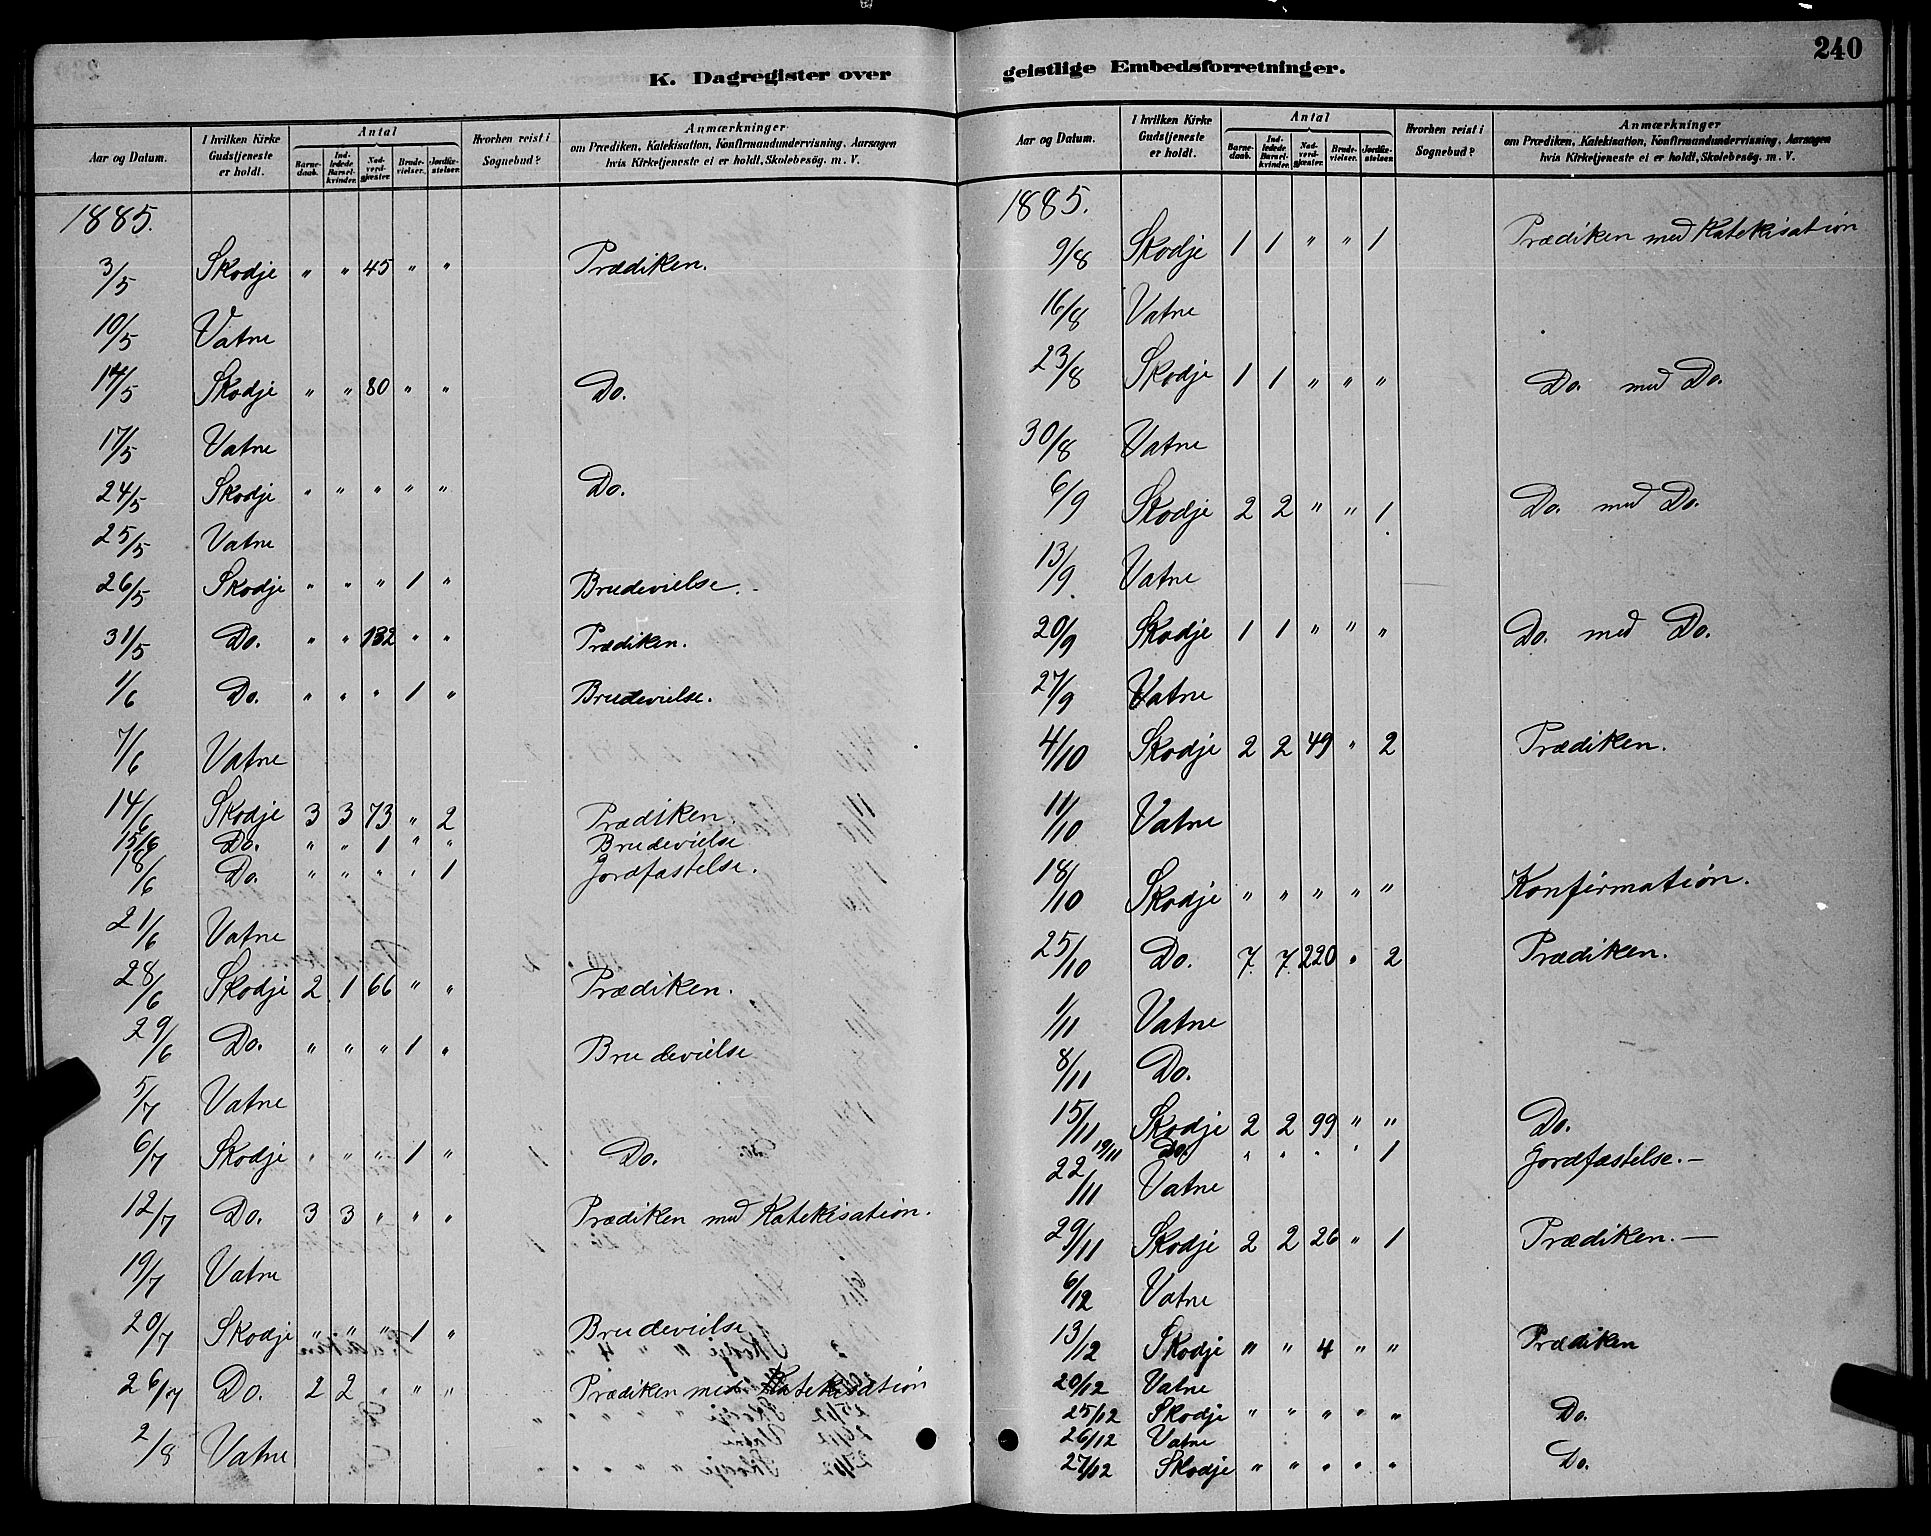 K. Dagregister over
Aar og Datum. I hvilken Kirke Gudstjeneste er holdt. Antal Barne-daab. Ind-ledede Barsel-kvinder. Nad-verd-gjæster. Brude-vielser. Jordfæ-stelser. Hvorhen reist i Sognebud? Anmærkninger om Prædiken, Katekisation, Konfirmandundervisning, Aarsagen hvis Kirketjeneste ei er holdt, Skolebesøg. m. V.
1885.
3/5 Skodje " " 45 " " Prædiken.
10/5 Vatne
14/5 Skodje " " 80 " " Do.
17/5 Vatne
24/5 Skodje " " " " " Do.
25/5 Vatne
26/5 Skodje " " " 1 " Brudevielse.
31/5 Do. " " 132 " " Prædiken.
1/6 Do. " " " 1 " Brudevielse.
7/6 Vatne
14/6 Skodje 3 3 73 " 2 Prædiken.
15/6 Do. " " 1 " " Brudevielse
18/6 Do. " " " " 1 Jordfæstelse.
21/6 Vatne
28/6 Skodje 2 1 66 " " Prædiken.
29/6 Do. " " " 1 " Brudevielse
5/7 Vatne
6/7 Skodje " " " 1 " Do.
12/7 Do. 3 3 " " " Prædiken med Katekisation.
19/7 Vatne
20/7 Skodje " " " 1 " Brudevielse
26/7 Do. 2 2 " " " Prædiken med Katekisation
2/8 Vatne
geistlige Embedsforretninger.
240
Aar og Datum. I hvilken Kirke Gudstjeneste er holdt. Antal Barne-daab. Ind-ledede Barsel-kvinder. Nad-verd-gjæster. Brude-vielser. Jordfæ-stelser. Hvorhen reist i Sognebud? Anmærkninger om Prædiken, Katekisation, Konfirmandundervisning, Aarsagen hvis Kirketjeneste ei er holdt, Skolebesøg. m. V.
1885.
9/8 Skodje 1 1 " " 1 Prædiken med Katekisation
16/8 Vatne
23/8 Skodje 1 1 " " " Do. med Do.
30/8 Vatne
6/9 Skodje 2 2 " " 1 Do. med Do.
13/9 Vatne
20/9 Skodje 1 1 " " " Do. med Do.
27/9 Vatne
4/10 Skodje 2 2 49 " 2 Prædiken.
11/10 Vatne
18/10 Skodje " " " " " Konfirmation.
25/10 Do. 7 7 220 " 2 Prædiken.
1/11 Vatne
8/11 Do.
15/11 Skodje 2 2 99 " " Do.
19/11 Do. " " " " 1 Jordfæstelse.-
22/11 Vatne
29/11 Skodje 2 2 26 " 1 Prædiken.-
6/12 Vatne
13/12 Skodje " " 4 " " Prædiken
20/12 Vatne
25/12 Skodje " " " " " Do.
26/12 Vatne
27/12 Skodje " " " " " Do.